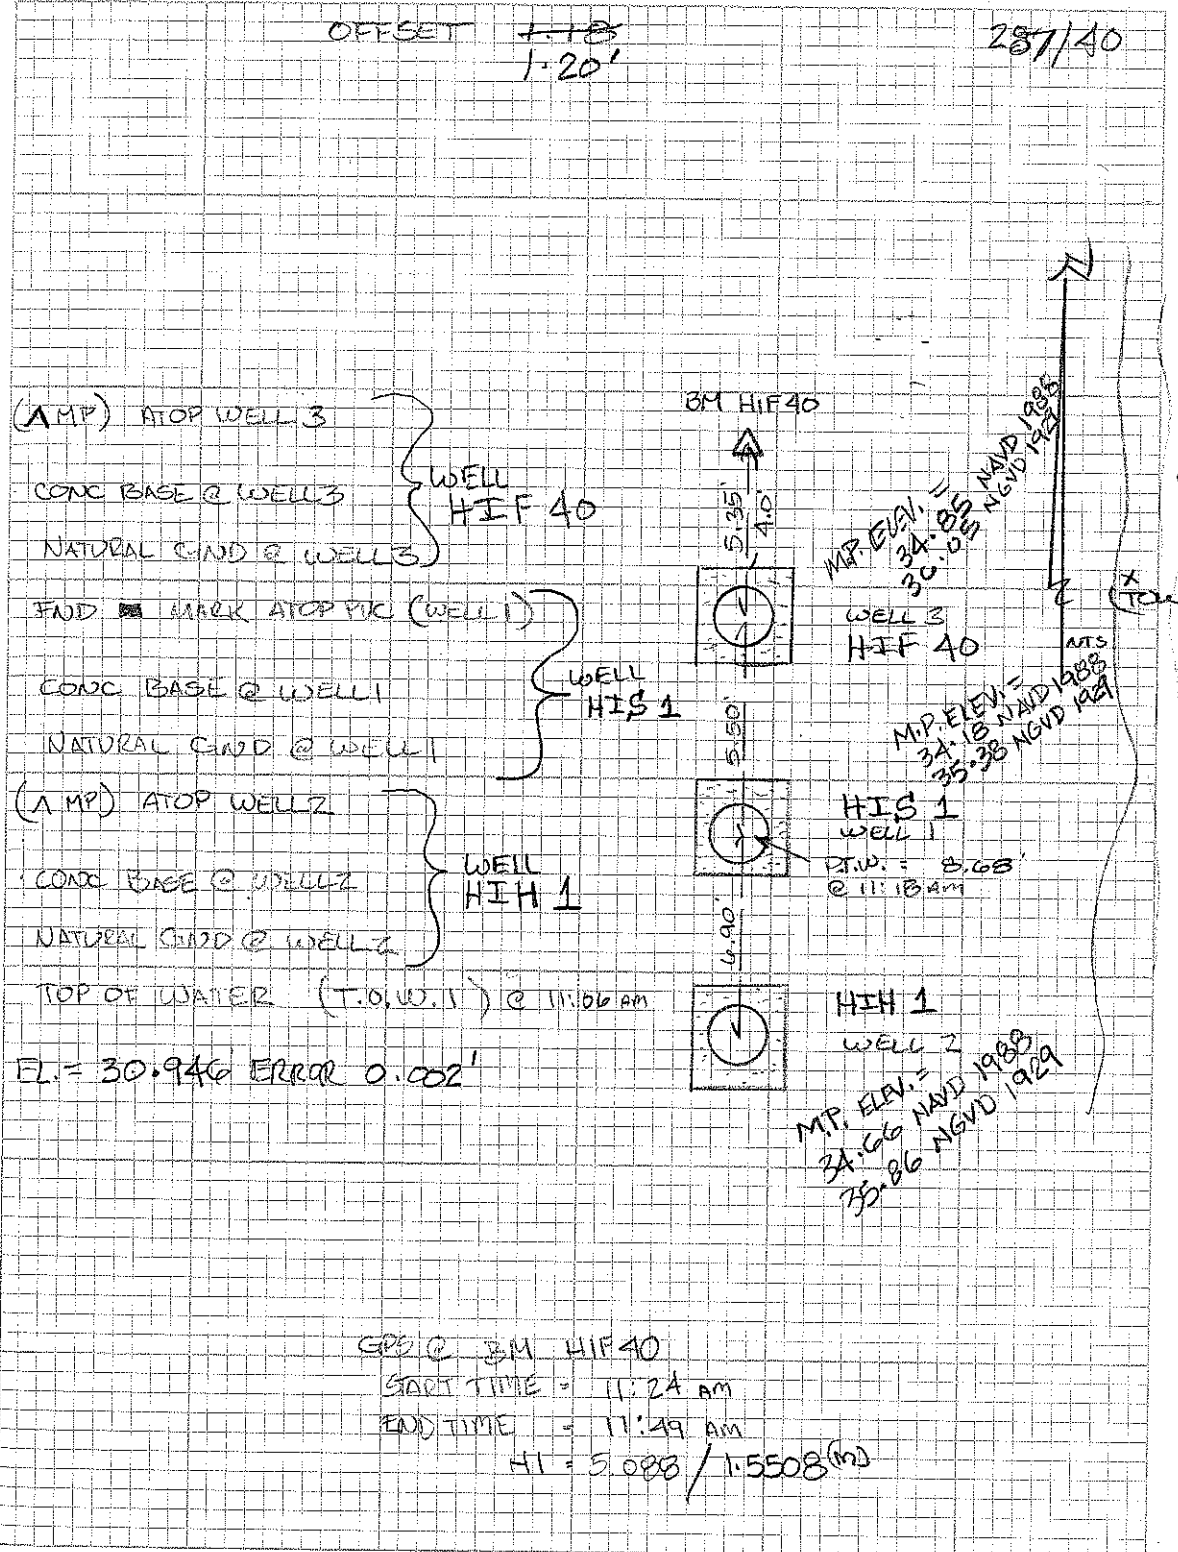 OFFSET 1.18
1.20'
287/40
N
(Λ MP) ATOP WELL 3
CONC BASE @ WELL 3
NATURAL GND @ WELL 3
WELL
HIF 40
FND MARK ATOP PVC (WELL 1)
CONC BASE @ WELL 1
NATURAL GND @ WELL 1
WELL
HIS 1
(Λ MP) ATOP WELL 2
CONC BASE @ WELL 2
NATURAL GND @ WELL 2
WELL
HIH 1
TOP OF WATER (T.O.W. 1) @ 11:06 AM
EL. = 30.946 ERROR 0.002'
BM HIF 40
5.35'
4.0'
M.P. ELEV. =
34.85 NAVD 1988
36.05 NGVD 1929
WELL 3
HIF 40
X
(TOW
NTS
5.50'
M.P. ELEV. =
34.18 NAVD 1988
35.38 NGVD 1929
HIS 1
WELL 1
D.T.W. = 8.68'
@ 11:18 AM
6.90'
HIH 1
WELL 2
M.P. ELEV. =
34.66 NAVD 1988
35.86 NGVD 1929
GPS @ BM HIF 40
START TIME = 11:24 AM
END TIME = 11:49 AM
HI = 5.088 / 1.5508 (m)